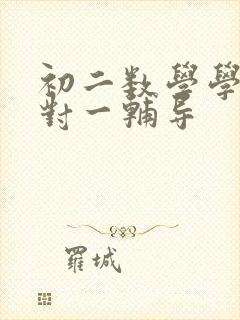 初二数學學
對一輔导
羅城